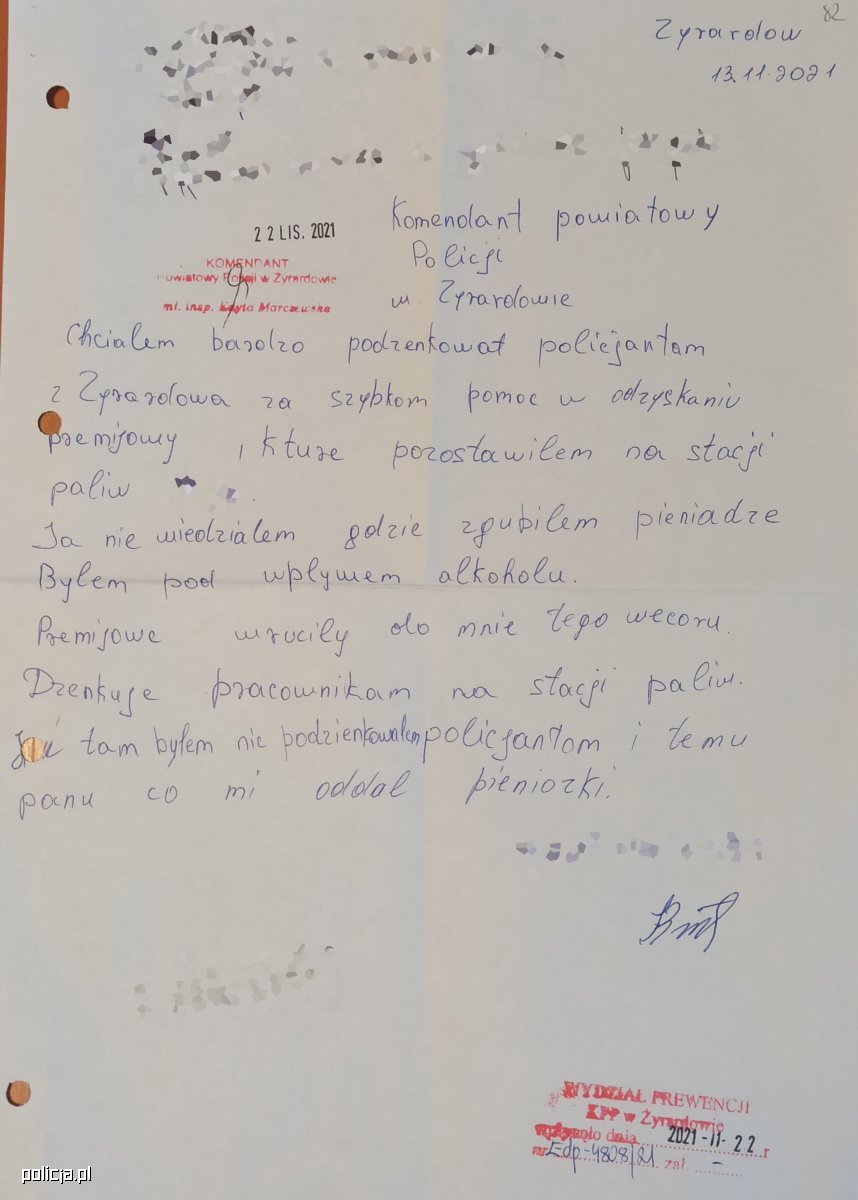 82
Zyrardow
13.11.2021
22 LIS. 2021
KOMENDANT
Powiatowy Policji w Żyrardowie
mł. insp. Edyta Marczewska
Komendant powiatowy
Policji
w. Zyrardowie
Chcialem bardzo podzenkowat policjantam
z Zyrardowa za szybkom pomoc w odzyskaniu
premijowy , kture pozostawilem na stacji
paliw .
Ja nie wiedzialem gdzie zgubilem pieniadze
Bylem pod wplywem alkoholu.
Premijowe wrucily do mnie tego wecoru.
Dzenkuje pracownikam na stacji paliw.
tam byłem nie podzienkowalem policjantom i temu
panu co mi oddal pieniozki.
WYDZIAŁ PREWENCJI
KPP w Żyrardowie
wpłynęło dnia 2021-11-22 r
nr Edp-4808/21 zał. -
policja.pl